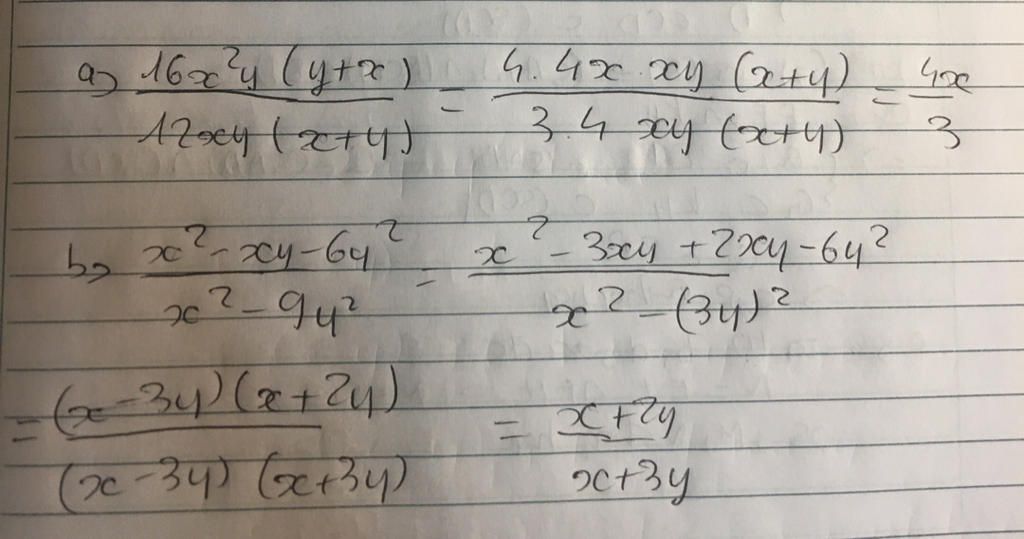 a) 16x²y (y+x) / 12xy (x+y) = 4.4x.xy (x+y) / 3.4 xy (x+y) = 4x / 3
b) x²-xy-6y² / x²-9y² = x²-3xy+2xy-6y² / x²-(3y)²
= (x-3y)(x+2y) / (x-3y) (x+3y) = x+2y / x+3y